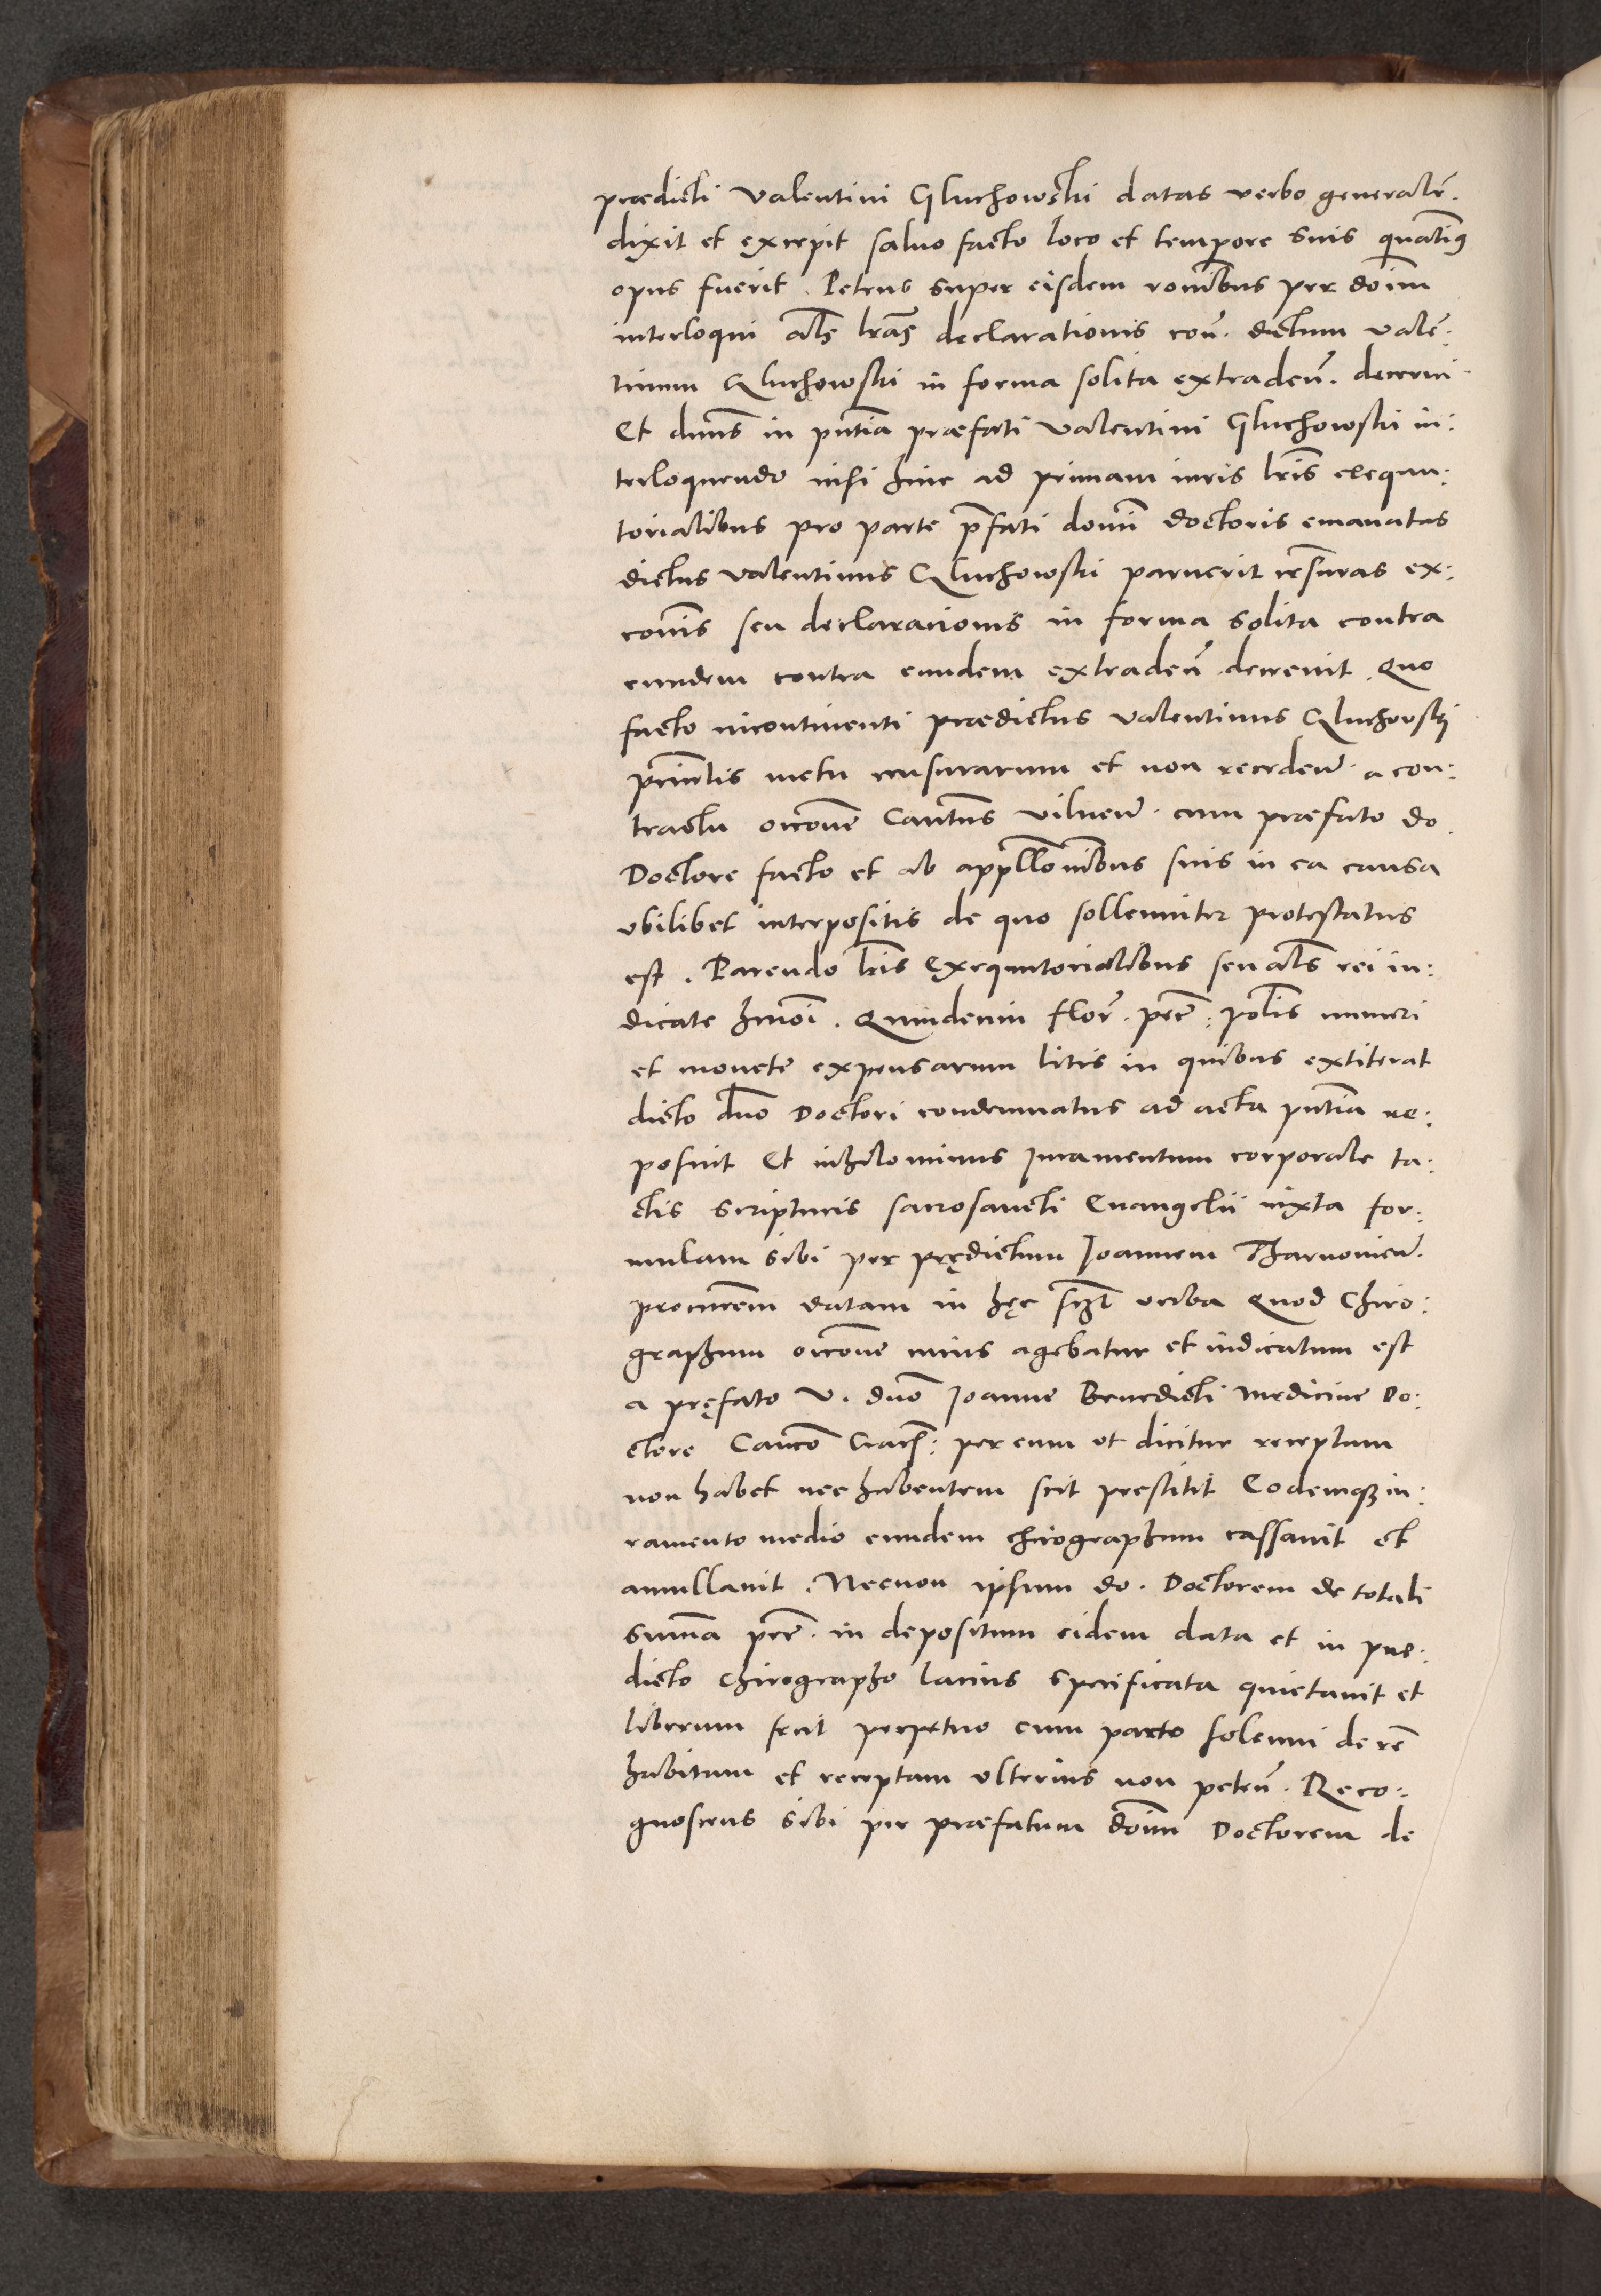 praedicti Valentini Gluchowski datas verbo generalr̃.
dixit et excepit salvo facto loco et tempore suis quatinꝰ
opus fuerit. Petens super eisdem ronibus per doim
interloqui als̃ lrãs declarationis con̄. dictum Valẽ:
tinum Gluchowski in forma solita extraden̄. decerni
Et dnus̃ in pn̄tia praefati Valentini Gluchowski in:
terloquendo nisi hinc ad primam iuris lrĩs exequu:
torialibus pro parte p̄fati domĩ doctoris emanatas
dictus Valentinus Gluchowski paruerit cẽsuras ex:
conis̃ seu declarationis in forma solita contra
eundem contra eundem extraden̄. decrevit. Quo
facto incontinenti praedictus Valentinus Gluchowski
prĩcialis metu censurarum et non receden̄. a con:
tractu occone Cantus̃ Viluen̄. cum praefato do.
Doctore facto et ab appellõnibus suis in ea causa
ubilibet interpositis de quo sollemniter protestatus
est. Parendo lrĩs Exequutorialibus seu als̃ rei iu:
dicate hmõi. Quindecim flor̃. pec̃: polis̃ numeri
et monete expensarum litis in quibus extiterat
dicto dno Doctori condemnatus ad acta pn̄tia re:
posuit Et nihilominus Iuramentum corporale ta:
ctis scripturis sacrosancti Evangelii iuxta for:
mulam sibi per prędictum Ioannem Tharnovien̄.
procurem̃ datam in hęc scz̃t verba Quod Chiro:
graphum occone cuius agebatur et iudicatum est
a pręfato V. dno Ioanne Benedicti medicine Do:
ctore Canco Crac̃: per eum ut dicitur receptum
non habet nec habentem scit prestitit Eodemqꝫ iu:
ramento medio eundem chirographum cassavit et
annullavit. Necnon ipsum do. Doctorem de totali
summa pec̃. in depositum eidem data et in prae:
dicto chirographo latius specificata quietavit et
liberum fecit perpetuo cum pacto solenni de rẽ
habitam et receptam ulterius non peten̄. Reco:
gnoscens sibi per praefatum doim Doctorem de